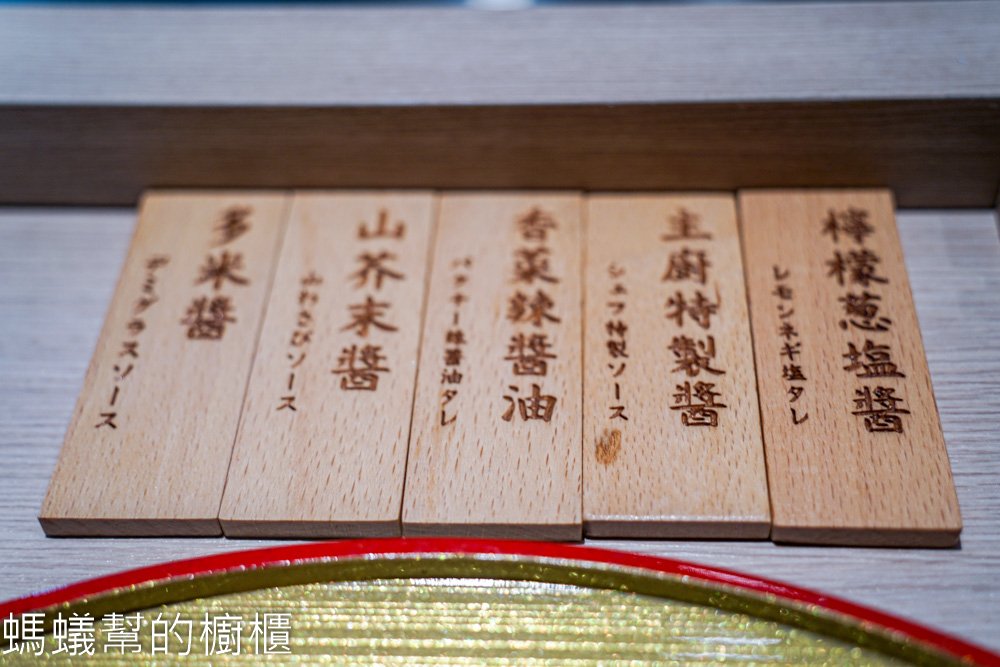 檸檬蔥塩醬
レモンネギ塩タレ
主廚特製醬
シェフ特製ソース
香菜辣醬油
パクチー辣醤油タレ
山芥末醬
山わさびソース
多米醬
デミグラスソース
螞蟻幫的櫥櫃